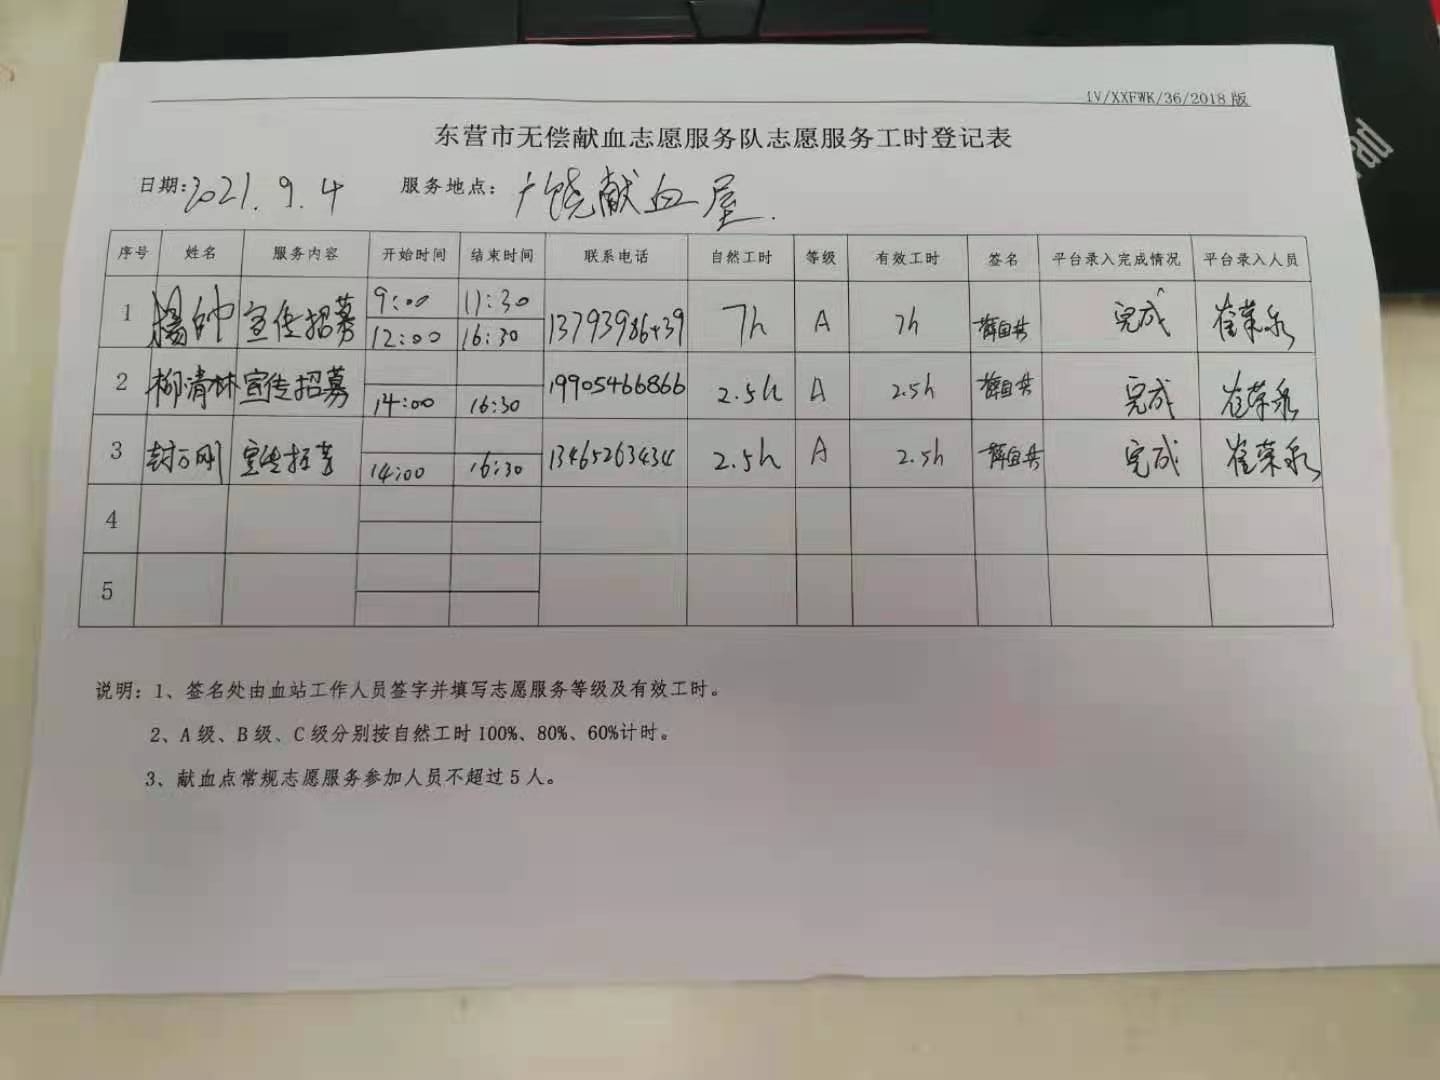 1V/XXFWK/36/2018版
东营市无偿献血志愿服务队志愿服务工时登记表
日期:2021.9.4 服务地点:广饶献血屋.
序号 姓名 服务内容 开始时间 结束时间 联系电话 自然工时 等级 有效工时 签名 平台录入完成情况 平台录入人员
1 杨帅 宣传招募 9:00 11:30 13793986439 7h A 7h 完成 崔荣泉
12:00 16:30
2 柳清林 宣传招募 14:00 16:30 19905466866 2.5h A 2.5h 完成 崔荣泉
3 封万刚 宣传招募 14:00 16:30 13465263434 2.5h A 2.5h 完成 崔荣泉
4
5
说明:1、签名处由血站工作人员签字并填写志愿服务等级及有效工时。
2、A级、B级、C级分别按自然工时100%、80%、60%计时。
3、献血点常规志愿服务参加人员不超过5人。